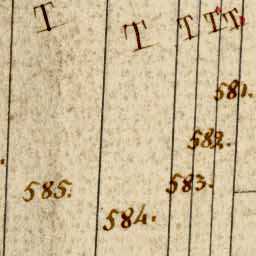 T T T T T
581.
582.
583.
585.
584.